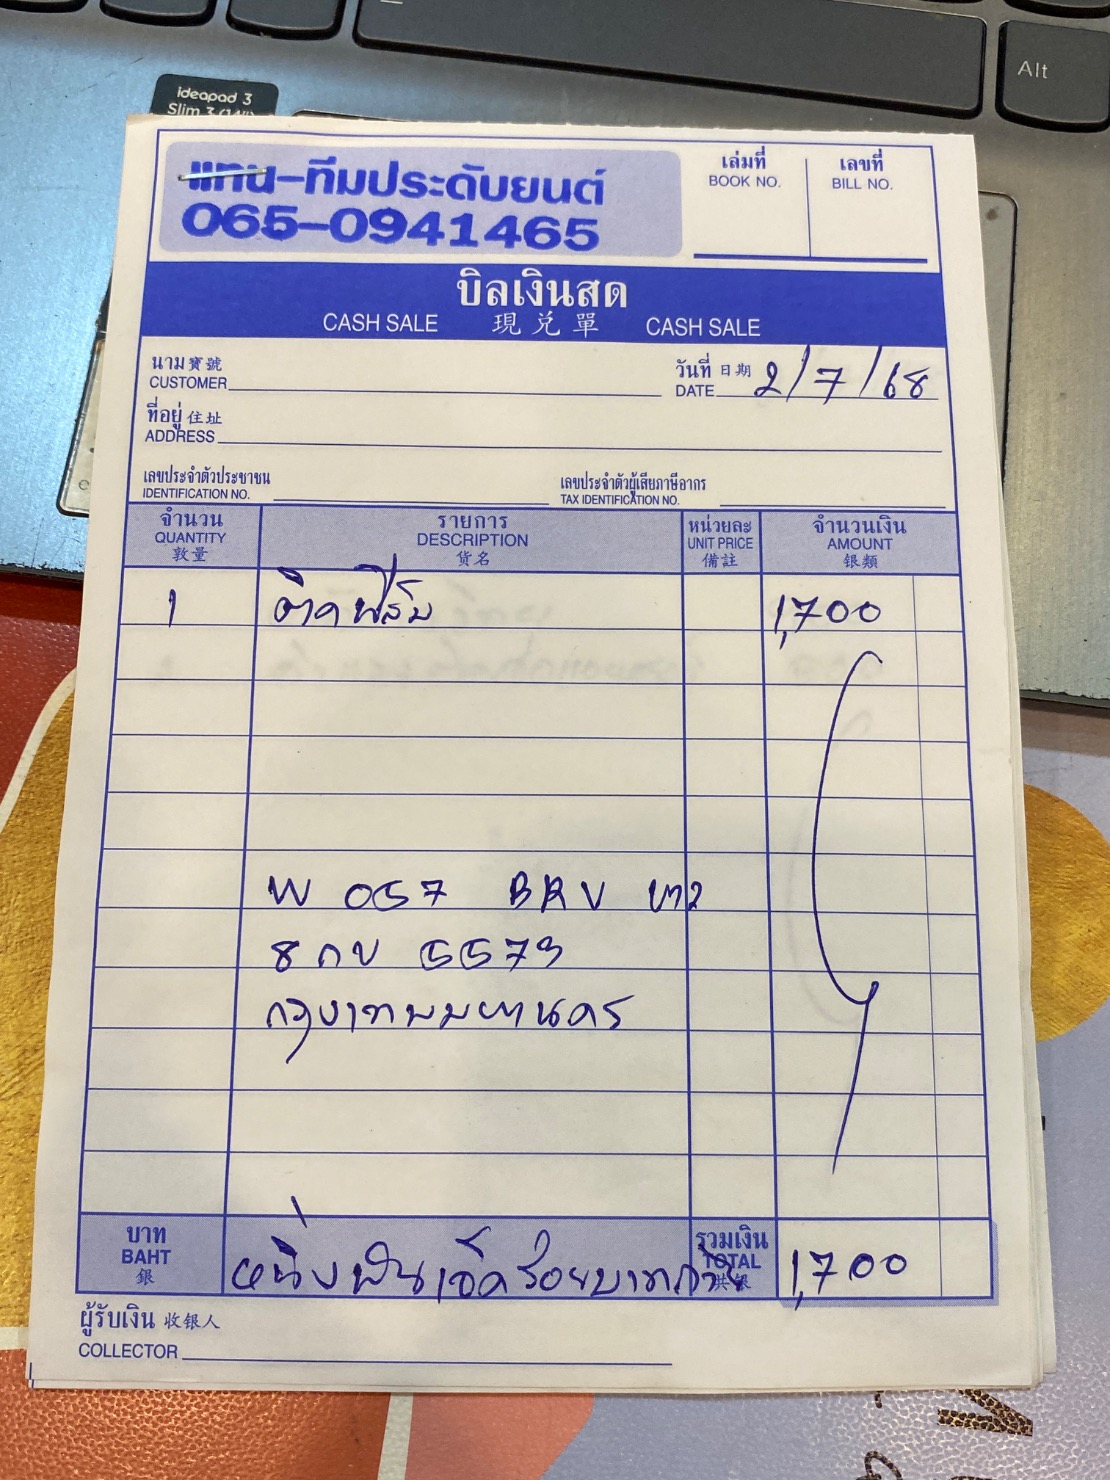 Alt
ideapad 3
Slim 3 (14")
แทน-ทีมประดับยนต์
065-0941465
เล่มที่
BOOK NO.
เลขที่
BILL NO.
บิลเงินสด
CASH SALE 現兌單 CASH SALE
นาม寶號
CUSTOMER
วันที่ 日期
DATE 2/7/68
ที่อยู่ 住址
ADDRESS
เลขประจำตัวประชาชน
IDENTIFICATION NO.
เลขประจำตัวผู้เสียภาษีอากร
TAX IDENTIFICATION NO.
จำนวน
QUANTITY
รายการ
DESCRIPTION
貨名
หน่วยละ
UNIT PRICE
備註
จำนวนเงิน
AMOUNT
银類
1 ติดฟิล์ม 1,700
W 057 BRV
8 กข 5573
กรุงเทพมหานคร
บาท
BAHT
銀
หนึ่งพันเจ็ดร้อยบาทถ้วน
รวมเงิน
TOTAL
1,700
ผู้รับเงิน 收银人
COLLECTOR